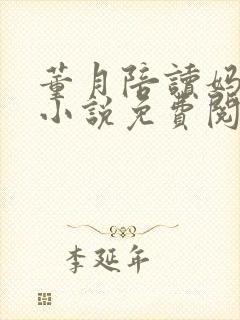 董月陪讀妈
小說免費閱
李延年